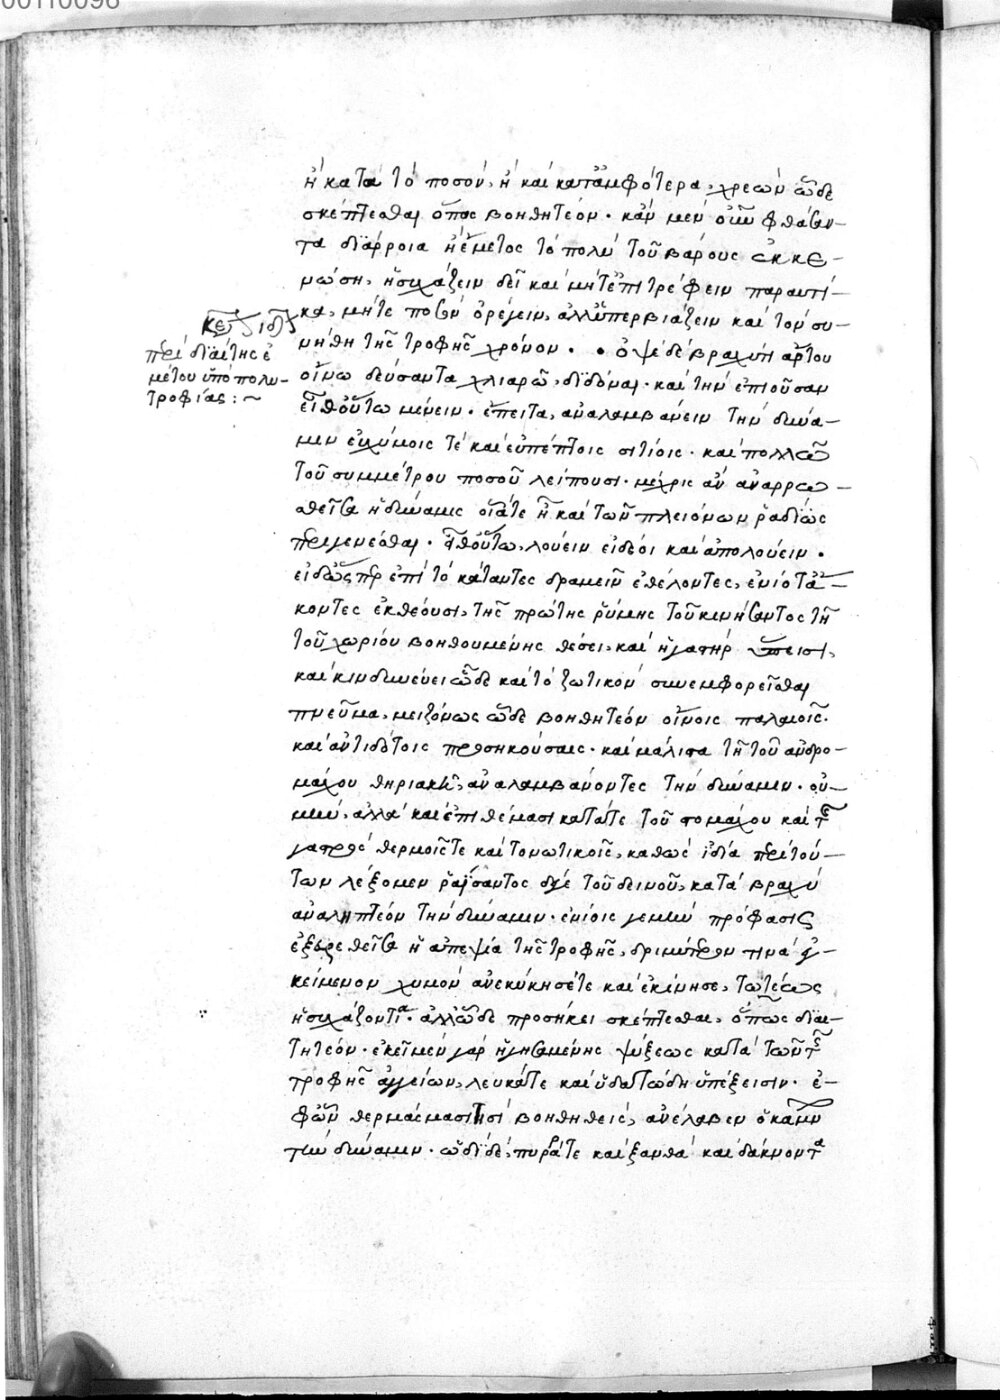 00110096
ἢ κατὰ τὸ ποσόν, ἢ καὶ κατ' ἄμφότερα, χρεὼν ὧδε
σκέπτεσθαι ὅπως βοηθητέον. κἂν μὲν οὖν φθάσαν-
τα διάρροια ἢ ἔμετος τὸ πολὺ τοῦ βάρους ἐκκε-
νώση, ἡσυχάζειν δεῖ καὶ μήτ' ἐπιτρέφειν παραυτί-
κα, μήτε ποτὸν ὀρέγειν, ἀλλ' ὑπερβιάζειν καὶ τὸν συ-
νήθη τῆς τροφῆς χρόνον. ὀψὲ δὲ βραχὺν ἄρτου
οἴνω δεύσαντα χλιαρῶ, διδόναι. καὶ τὴν ἐπιοῦσαν
εἶθ' οὕτω μένειν. ἔπειτα, ἀναλαμβάνειν τὴν δύνα-
μιν εὐχύμοις τὲ καὶ εὐπέπτοις σιτίοις. καὶ πολλῶ
τοῦ συμμέτρου ποσοῦ λείπουσι. μέχρις ἂν ἀναρρω-
σθεῖσα ἡ δύναμις οἵα τε ἦ καὶ τῶν πλειόνων ῥαδίως
περιγενέσθαι. εἶθ' οὕτω, λούειν εἰ δέοι καὶ ἀπολούειν.
εἰ δ' ὥσπερ ἐπὶ τὸ κάταντες δραμεῖν ἐθέλοντες, ἐνίοτ' ἄ-
κοντες ἐκθέουσι, τῆς πρώτης ῥύμης τοῦ κινήσαντος τῆ
τοῦ χωρίου βοηθουμένης θέσει, καὶ ἡ γαστὴρ
καὶ κινδυνεύει ὧδε καὶ τὸ ζωτικὸν συνεμφορεῖσθαι
πνεῦμα, μειζόνως ὧδε βοηθητέον οἴνοις παλαιοῖς.
καὶ ἀντιδότοις προσηκούσαις. καὶ μάλιστα τῆ τοῦ ἀνδρο-
μάχου θηριακῆ, ἀναλαμβάνοντες τὴν δύναμιν. οὐ
μὴν, ἀλλὰ καὶ ἐπιθέμασι κατά τε τοῦ στομάχου καὶ τῆς
γαστρὸς θερμοῖς τε καὶ τονωτικοῖς, καθὼς ἰδία περὶ τού-
των λέξομεν ῥαΐσαντος δὲ τοῦ δεινοῦ, κατὰ βραχὺ
ἀναληπτέον τὴν δύναμιν. ἐνίοις γε μὴν πρόφασις
ἐξευρεθεῖσα ἡ ἀπεψία τῆς τροφῆς, δριμύτερόν τινα ἐγ-
κείμενον χυμὸν ἀνεκύκησέ τε καὶ ἐκίνησε, τὸ τέως
ἡσυχάζοντα. ἀλλ' ὧδε προσήκει σκέπτεσθαι, ὅπως διαι-
τητέον. ἐκεῖ μὲν γὰρ ἡγησαμένης ψύξεως κατὰ τῶν τῆς
τροφῆς ἀγγείων, λευκά τε καὶ ὑδατώδη ὑπέξεισιν. ἐ-
φ' ὧν θερμάσμασι τισὶ βοηθηθεὶς, ἀνέλαβεν ὁ κάμνων
τὴν δύναμιν. ὧδι δὲ, πυρά τε καὶ ξανθὰ καὶ δάκνοντα
περὶ διαίτης ἐ
μέτου ὑπὸ πολυ-
τροφίας:~